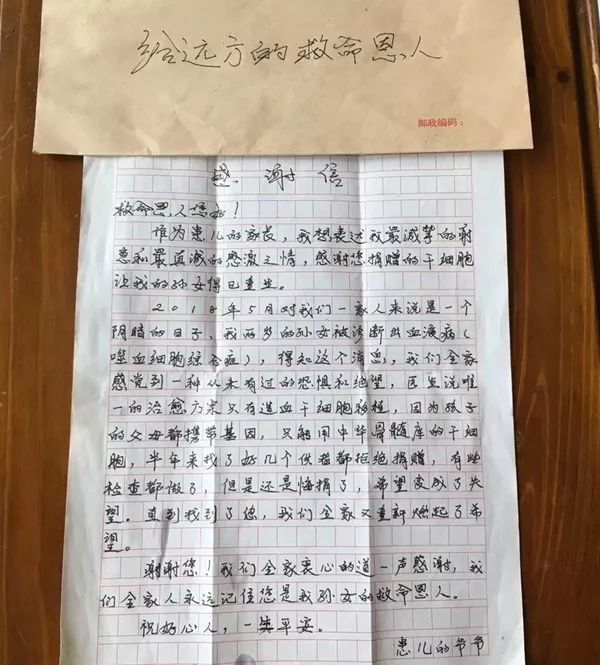 给远方的救命恩人
邮政编码:
感谢信
救命恩人您好!
作为患儿的家长,我想表达我最诚挚的谢
意和最真诚的感激之情,感谢您捐赠的干细胞
让我的孙女得已重生。
2018年5月对我们一家人来说是一个
阴暗的日子,我两岁的孙女被诊断出血液病(
噬血细胞综合症),得知这个消息,我们全家
感觉到一种从未有过的恐惧和绝望,医生说唯
一的治愈方案只有造血干细胞移植,因为孩子
的父母都携带基因,只能用中华骨髓库的干细
胞,半年来找了好几个供者都拒绝捐赠,有些
检查都做了,但是还是悔捐了,希望变成了失
望。直到找到了您,我们全家又重新燃起了希
望。
谢谢您!我们全家衷心的道一声感谢,我
们全家人永远记住您是我孙女的救命恩人。
祝好心人,一生平安。
患儿的爷爷